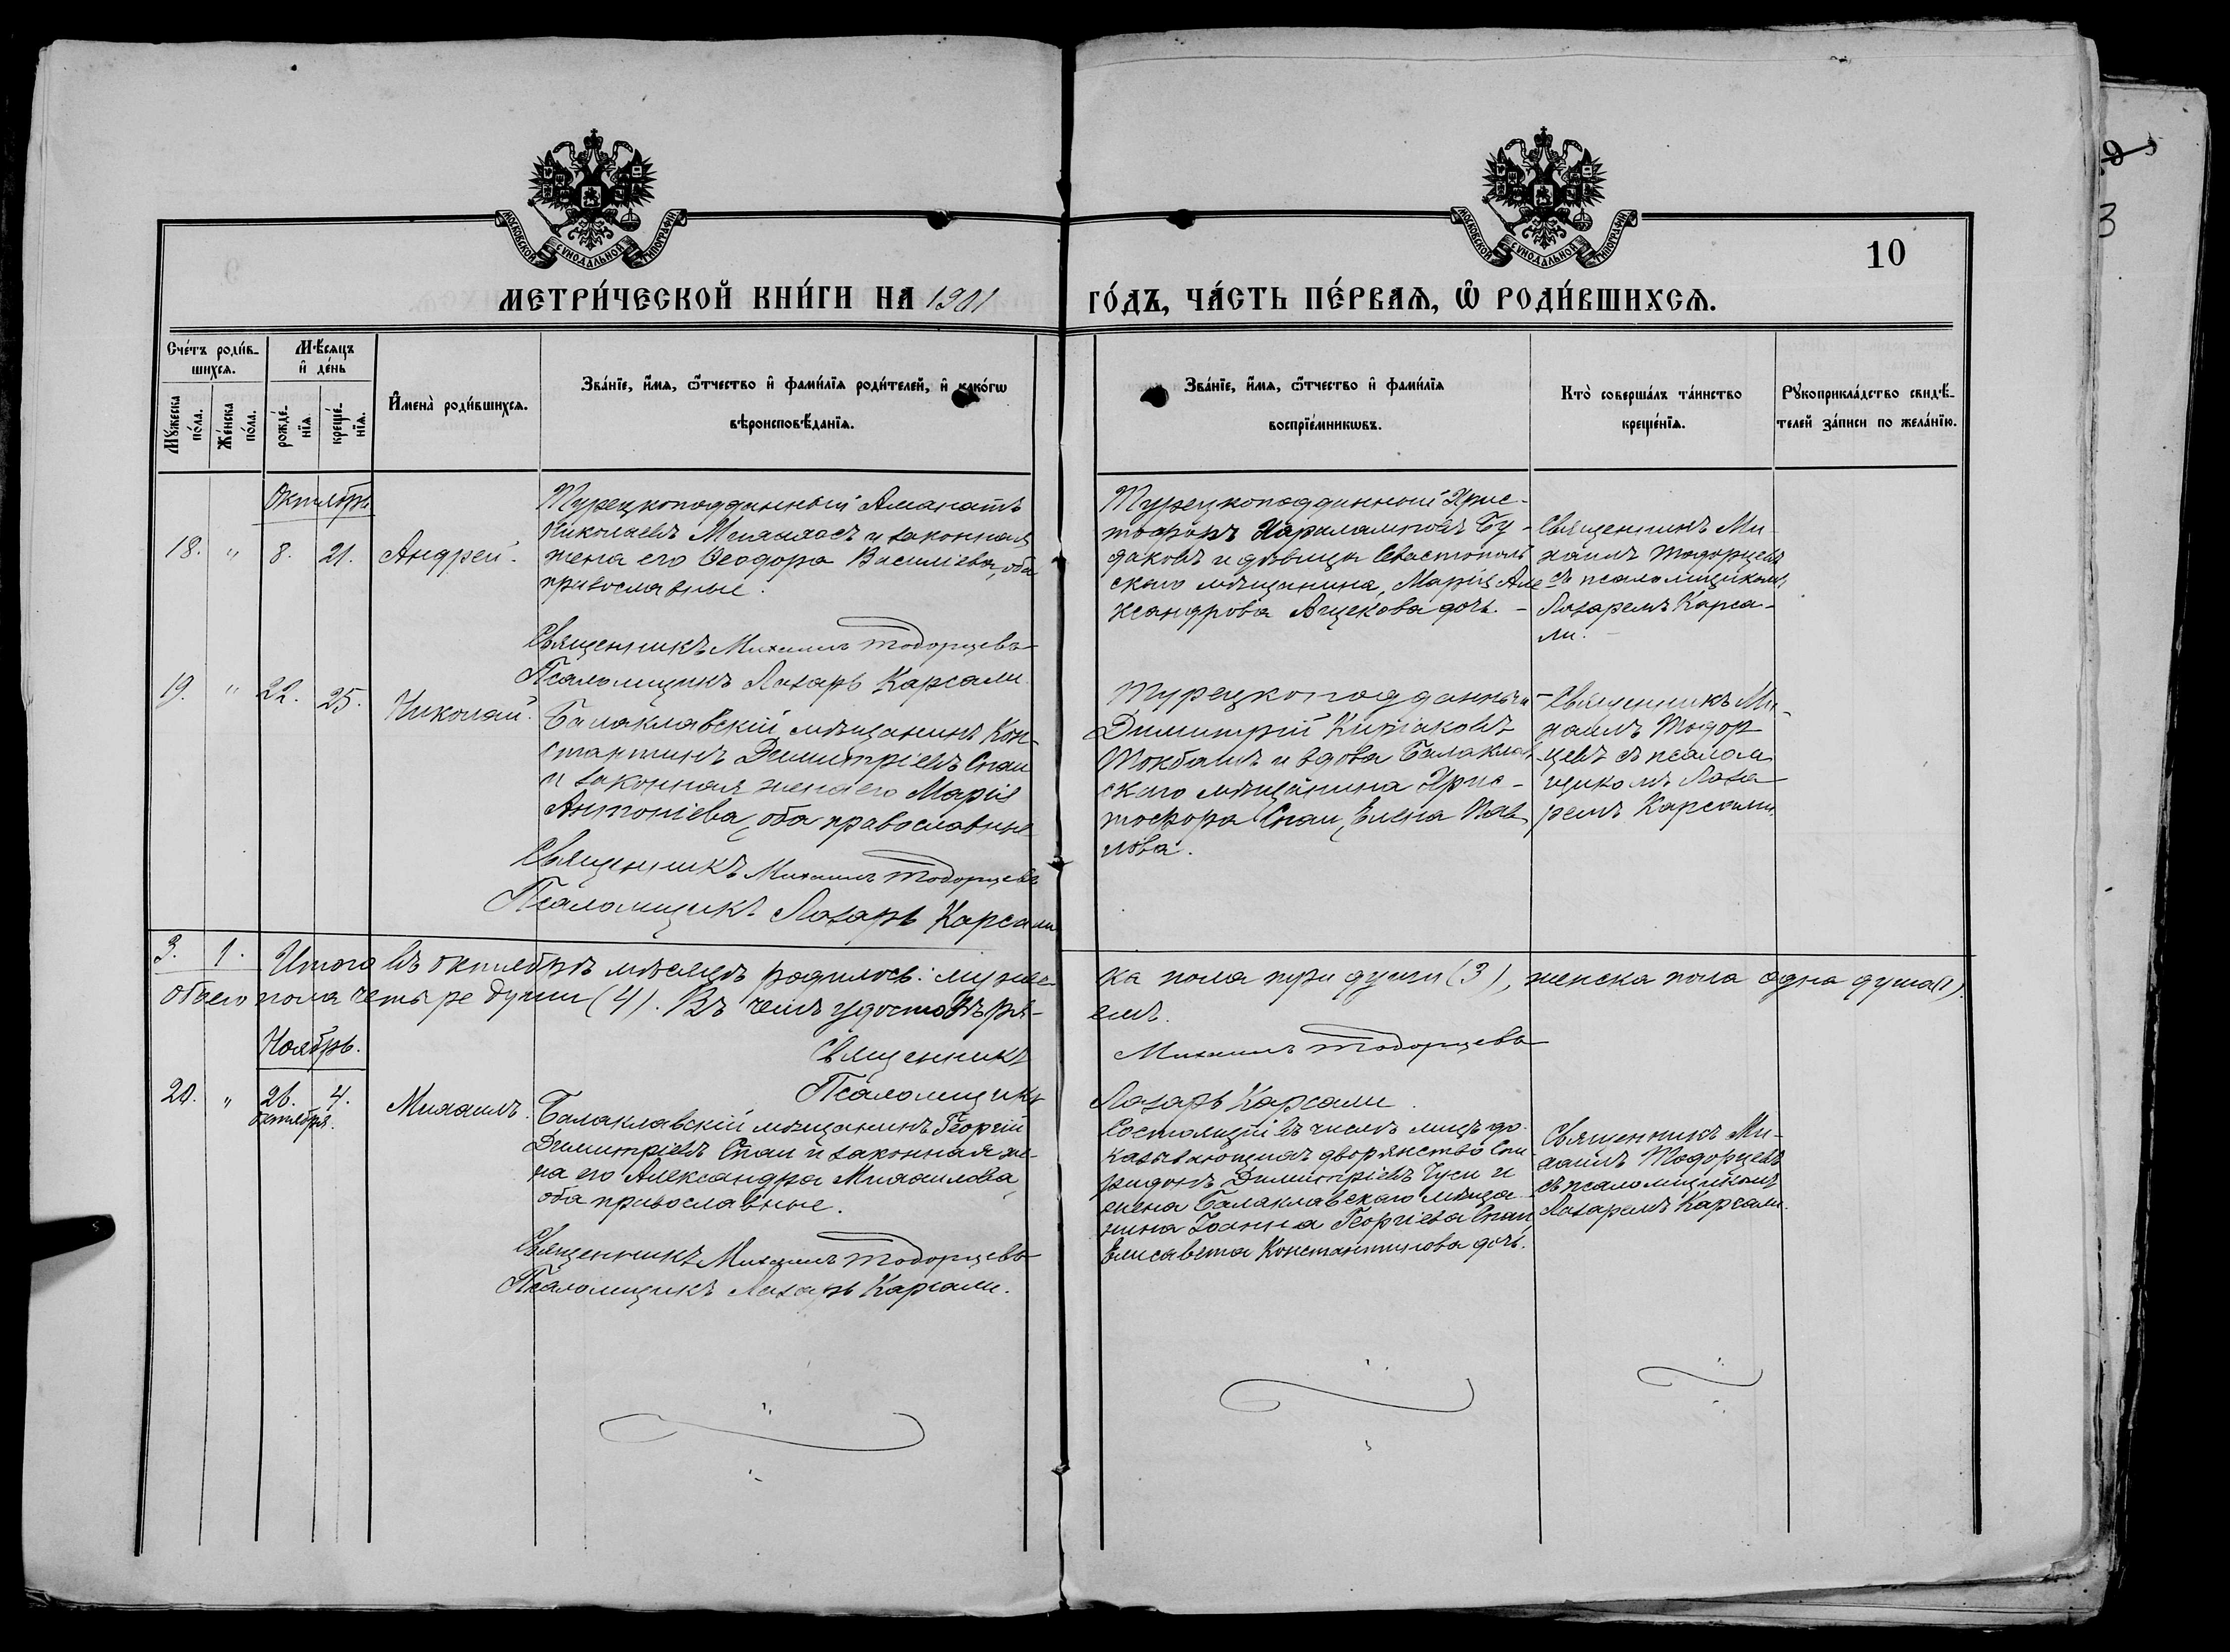 МОСКОВСКОЙ СѴНОДАЛЬНОЙ ТИПОГРАФІИ
МОСКОВСКОЙ СѴНОДАЛЬНОЙ ТИПОГРАФІИ
10
МЕТРИ́ЧЕСКОЙ КНИ́ГИ НА 1901
ГО́ДЪ, ЧА́СТЬ ПЕ́РВАѦ, Ѽ РОДИ́ВШИХСѦ.
Сче́тъ роди́в-
шихсѧ.
Мꙋ́жеска по́ла.
Же́нска по́ла.
Мѣ́сяцъ
и҆ де́нь
рожде́-
нїѧ.
креще́-
нїѧ.
И҆мена̀ роди́вшихсѧ.
Зва́нїе, и҆́мѧ, ѻ҆́тчество и҆ фами́лїѧ роди́телей, и҆ како́гѡ
вѣроисповѣ́данїѧ.
Зва́нїе, и҆́мѧ, ѻ҆́тчество и҆ фами́лїѧ
воспрїе́мникѡвъ.
Кто̀ соверша́лъ та́инство
креще́нїѧ.
Рꙋкоприкла́дство свидѣ́-
телей за́писи по жела́нїю.
Октябрь
18. " 8. 21. Андрей.
Турецкоподданный Аманатъ
Николаевъ и законная
жена его Ѳеодора Василіева, оба
православные.
Священникъ Михаилъ Тодорцевъ
Псаломщикъ Лазарь Карсали
Турецкоподданный Хрис-
тофоръ Харалампіевъ Бу-
даковъ и дѣвица Севастополь
скаго мѣщанина, Марія Але
ксандрова дочь. -
Священникъ Ми-
хаилъ Тодорцевъ
съ псаломщикомъ
Лазаремъ Карса-
ли.
19. " 22. 25. Николай.
Балаклавскій мѣщанинъ Кон-
стантинъ Димитріевъ Спаи
и законная жена его Марія
Антоніева, оба православные
Священникъ Михаилъ Тодорцевъ
Псаломщикъ Лазарь Карсали
Турецкоподданный
Димитрій Киріаковъ
и вдова Балаклав
скаго мѣщанина Хрис-
тофора Спаи, Елена Пав
лова.
Священникъ Ми-
хаилъ Тодор
цевъ съ псалом
щикомъ Лаза
ремъ Карсали.
3. 1. Итого въ октябрѣ мѣсяцѣ родилось: мужес-
ка пола три души (3), женска пола одна душа (1).
обоего пола четыре души (4). Въ чемъ удостовѣря-
емъ.
Священникъ Михаилъ Тодорцевъ
Псаломщикъ Лазарь Карсали.
Ноябрь.
20. " 26. 4. Михаилъ.
октября.
Балаклавскій мѣщанинъ Георгій
Димитріевъ Спаи и законная же-
на его Александра Михаилова,
оба православные.
Священникъ Михаилъ Тодорцевъ
Псаломщикъ Лазарь Карсали.
Состоящій въ числѣ лицъ до-
казывающихъ дворянство Спи
ридонъ Димитріевъ Чуси и
жена Балаклавскаго мѣща-
нина Іоанна Георгіева Спаи
Елисавета Константинова дочь.
Священникъ Ми-
хаилъ Тодорцевъ
съ псаломщикомъ
Лазаремъ Карсали.